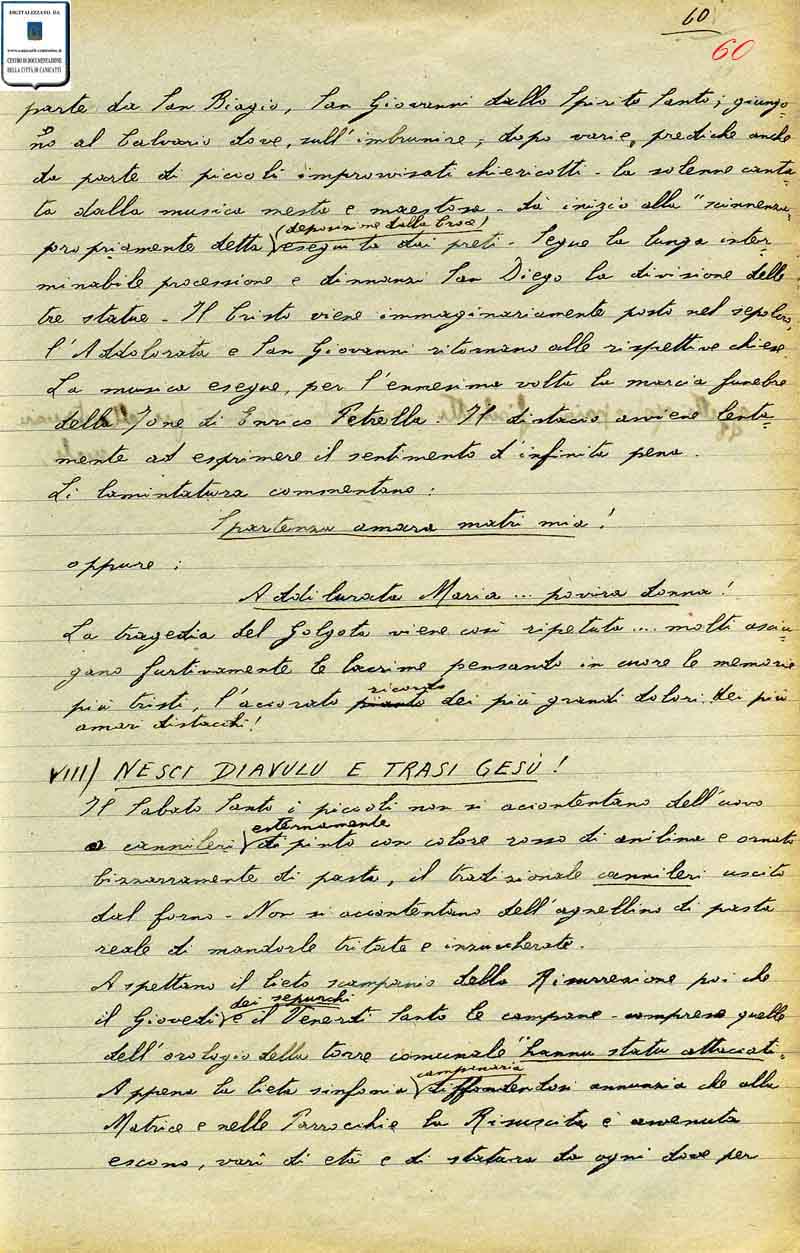 DIGITALIZZATO DA
CENTRO DI DOCUMENTAZIONE
DELLA CITTÀ DI CANICATTÌ
60
60
parte da San Biagio, San Giovanni dallo Spirito Santo; giungo-
no al Calvario dove, sull'imbrunire, dopo varie prediche anche
da parte di piccoli improvvisati chiericotti - la solenne canta-
ta dalla musica mesta e maestosa - dà inizio alla "scinnenza
(deposizione dalla Croce)
propriamente detta eseguita dai preti - Segue la lunga inter-
minabile processione e dinnanzi San Diego la divisione delle
tre statue - Il Cristo viene immaginariamente posto nel sepolcro,
l'Addolorata e San Giovanni ritornano alle rispettive chiese
La musica esegue, per l'ennesima volta la marcia funebre
della Jone di Enrico Petrella. Il distacco avviene lenta-
mente ad esprimere il sentimento d'infinita pena.
Li lamintatura commentano:
Spartenza amara matri mia!
oppure:
Addilurata Maria ... povira donna!
La tragedia del Golgota viene così ripetuta ... molti asciu-
gano furtivamente le lacrime pensando in cuore le memorie
ricordo
più tristi, l'accorato pianto dei più grandi dolori. dei più
amari distacchi!
VIII) NESCI DIAVULU E TRASI GESÙ!
Il Sabato Santo i piccoli non si accontentano dell'uovo
esternamente
a cannileri dipinto con colore rosso di anilina e ornato
bizzarramente di pasta, il tradizionale cannileri uscito
dal forno - Non si accontentano dell'agnellino di pasta
reale di mandorle tritate e inzuccherate.
Aspettano il lieto scampanio della Risurrezione poi che
dei sepurchi
il Giovedì e il Venerdì Santo le campane - comprese quelle
dell'orologio della torre comunale "hannu statu attaccati.
campanaria
Appena la lieta sinfonia diffondendosi annunzia che alla
Matrice e nelle Parrocchie la Risuscita è avvenuta
escono, varî di età e di statura da ogni dove per